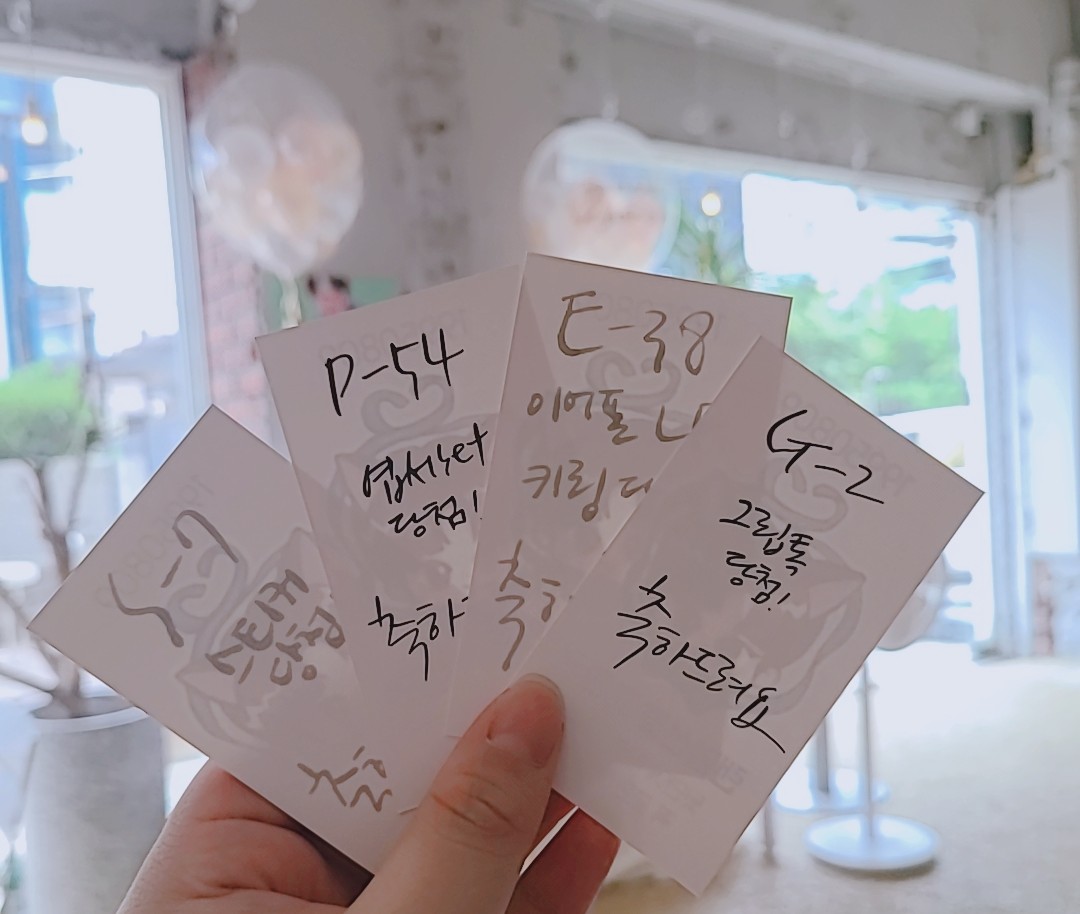 S-7
스티커
당첨
축
P-54
엽서set
당첨!
축하
E-38
이어폰
키링
축하
G-2
그립톡
당첨!
축하드려요